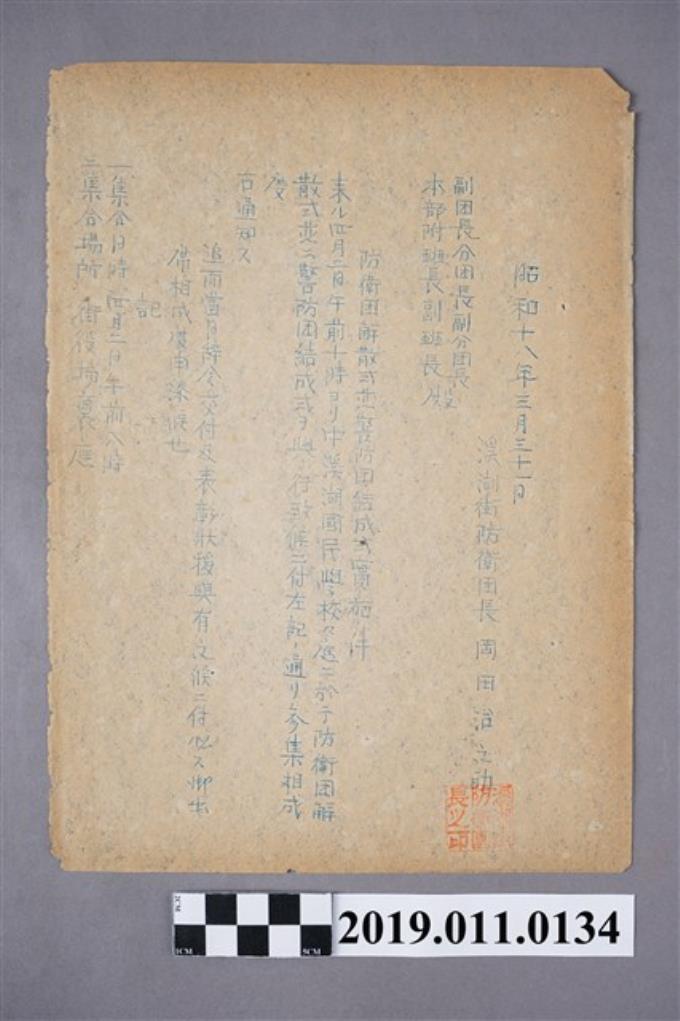 昭和十八年三月三十一日
溪湖街防衛団長 岡田治之助
副団長分団長副分団長
本部附班長副班長殿
防衛団解散式並ニ警防団結成式実施ノ件
来ル四月二日午前十時ヨリ中溪湖國民學校々庭ニ於テ防衛団解
散式並ニ警防団結成式ヲ挙行致候ニ付左記ノ通リ参集相成
度
右通知ス
追而當日辞令交付及表彰状授與有之候ニ付必ス御出
席相成度申添候也
記
一集合日時 四月二日午前八時
二集合場所 街役場裏庭
防衛團
長之印
2CM
1CM
5CM
2019.011.0134